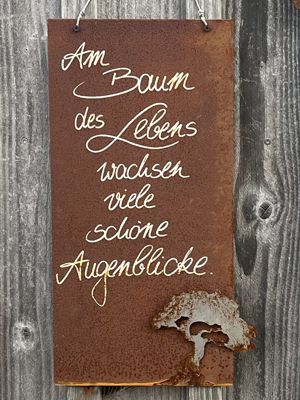 Am
Baum
des Lebens
wachsen
viele
schöne
Augenblicke.